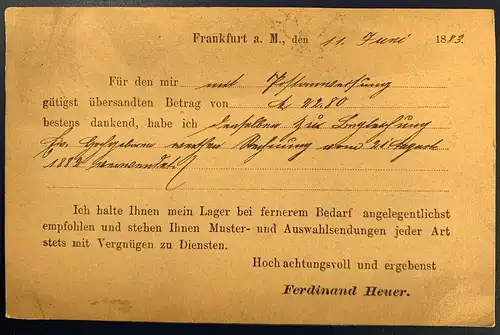 Frankfurt a. M., den 11. Juni 1883.
Für den mir mit Postanweisung
gütigst übersandten Betrag von M 42.80
bestens dankend, habe ich denselben zur Begleichung
Rechnung vom 21 August
1882 verwendet.
Ich halte Ihnen mein Lager bei fernerem Bedarf angelegentlichst
empfohlen und stehen Ihnen Muster- und Auswahlsendungen jeder Art
stets mit Vergnügen zu Diensten.
Hochachtungsvoll und ergebenst
Ferdinand Heuer.